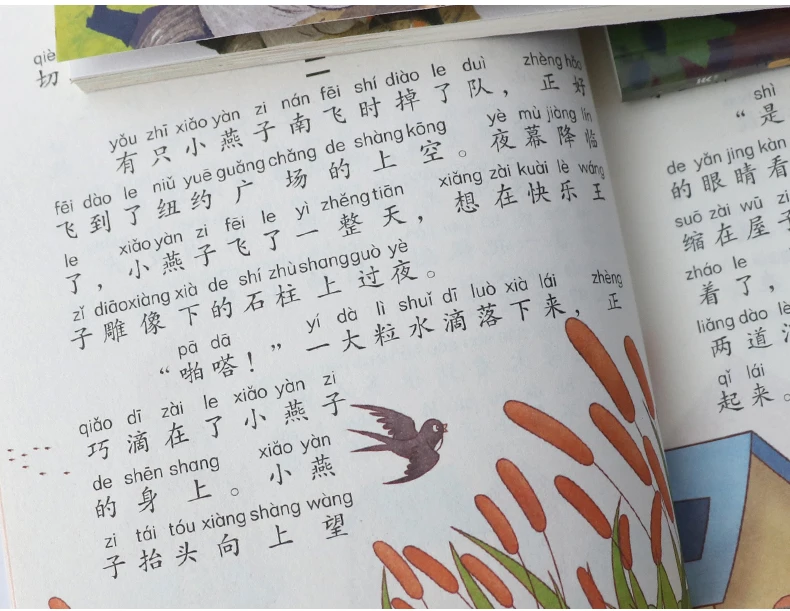 qiè
切
yǒu zhī xiǎo yàn zi nán fēi shí diào le duì zhèng hǎo
有只小燕子南飞时掉了队，正好
fēi dào le niǔ yuē guǎng chǎng de shàng kōng yè mù jiàng lín
飞到了纽约广场的上空。夜幕降临
le xiǎo yàn zi fēi le yì zhěng tiān xiǎng zài kuài lè wáng
了，小燕子飞了一整天，想在快乐王
zǐ diāo xiàng xià de shí zhù shang guò yè
子雕像下的石柱上过夜。
pā dā yí dà lì shuǐ dī luò xià lái zhèng
“啪嗒！”一大粒水滴落下来，正
qiǎo dī zài le xiǎo yàn zi
巧滴在了小燕子
de shēn shang xiǎo yàn
的身上。小燕
zi tái tóu xiàng shàng wàng
子抬头向上望
shì
“是
de yǎn jing kàn
的眼睛看
suō zài wū zi
缩在屋子
zháo le
着了，
liǎng dào
两道
qǐ lái
起来。